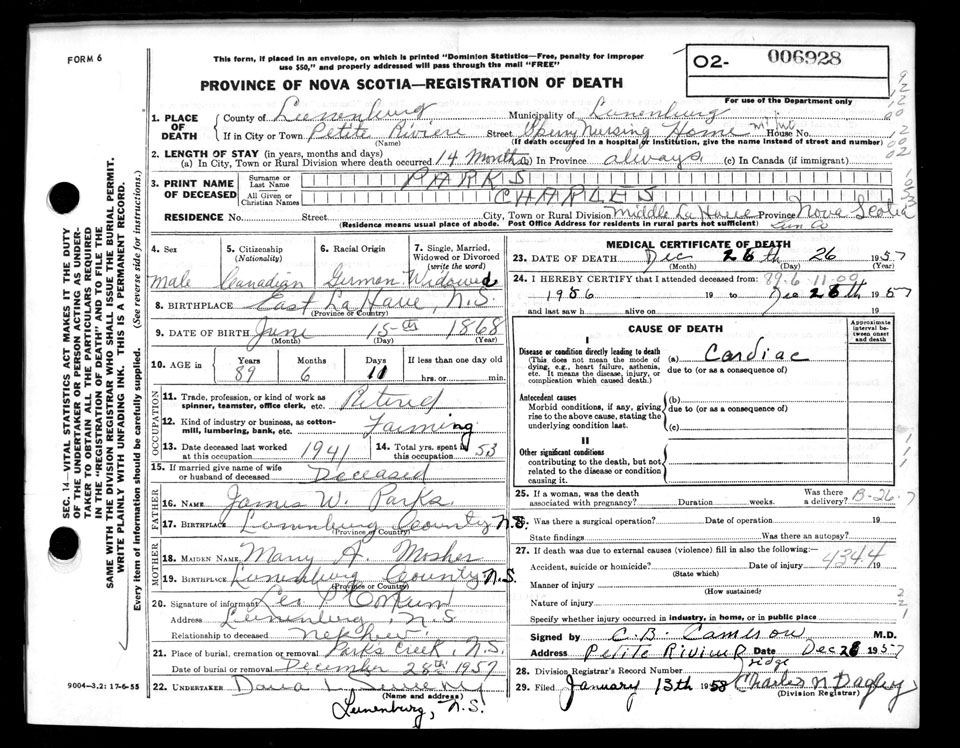 FORM 6
This form, if placed in an envelope, on which is printed "Dominion Statistics—Free, penalty for improper
use $50," and properly addressed will pass through the mail "FREE"
O2- 006928
PROVINCE OF NOVA SCOTIA—REGISTRATION OF DEATH
For use of the Department only
1. PLACE OF DEATH
County of Lunenburg Municipality of Lunenburg
If in City or Town Petite Riviere Street Nursing Home House No.
(Name) (If death occurred in a hospital or institution, give the name instead of street and number)
2. LENGTH OF STAY (in years, months and days)
(a) In City, Town or Rural Division where death occurred 14 Months (b) In Province always (c) In Canada (if immigrant)
3. PRINT NAME OF DECEASED
Surname or Last Name PARKS
All Given or Christian Names CHARLES
RESIDENCE No. Street City, Town or Rural Division Middle La Have Province Nova Scotia
(Residence means usual place of abode. Post Office Address for residents in rural parts not sufficient) Lun Co
4. Sex 5. Citizenship (Nationality) 6. Racial Origin 7. Single, Married, Widowed or Divorced (write the word)
male Canadian German Widowed
8. BIRTHPLACE East La Have, N.S.
(Province or Country)
9. DATE OF BIRTH June 15th 1868
(Month) (Day) (Year)
10. AGE in Years Months Days If less than one day old
89 6 11 hrs. or min.
OCCUPATION
11. Trade, profession, or kind of work as spinner, teamster, office clerk, etc. Retired
12. Kind of industry or business, as cotton-mill, lumbering, bank, etc. Farming
13. Date deceased last worked at this occupation 1941 14. Total yrs. spent in this occupation 53
15. If married give name of wife or husband of deceased Deceased
FATHER
16. NAME James W. Parks
17. BIRTHPLACE Lunenburg County N.S.
(Province or Country)
MOTHER
18. MAIDEN NAME Mary A. Mosher
19. BIRTHPLACE Lunenburg County N.S.
(Province or Country)
20. Signature of informant Leo P Corkum
Address Lunenburg N.S
Relationship to deceased nephew.
21. Place of burial, cremation or removal Parks Creek, N.S.
Date of burial or removal December 28th 1957
22. UNDERTAKER
(Name and address)
Lunenburg, N.S.
9004—3.2: 17-6-55
MEDICAL CERTIFICATE OF DEATH
23. DATE OF DEATH Dec 26th 26 1957
(Month) (Day) (Year)
24. I HEREBY CERTIFY that I attended deceased from: 89-6 11-09
1956 19 to Dec 26th 1957
and last saw h alive on 19
CAUSE OF DEATH
Approximate interval between onset and death
I
Disease or condition directly leading to death (a) Cardiac
(This does not mean the mode of dying, e.g., heart failure, asthenia, etc. It means the disease, injury, or complication which caused death.)
due to (or as a consequence of)
Antecedent causes
Morbid conditions, if any, giving rise to the above cause, stating the underlying condition last.
(b)
due to (or as a consequence of)
(c)
II
Other significant conditions
contributing to the death, but not related to the disease or condition causing it.
25. If a woman, was the death associated with pregnancy? Duration weeks. Was there a delivery? B-26-7
26. Was there a surgical operation? Date of operation 19
State findings Was there an autopsy?
27. If death was due to external causes (violence) fill in also the following:—
Accident, suicide or homicide? Date of injury 19 4344
(State which)
Manner of injury
(How sustained)
Nature of injury
Specify whether injury occurred in industry, in home, or in public place
Signed by C.B. Cameron M.D.
Address Petite Riviere Bridge Date Dec 26 1957
28. Division Registrar's Record Number
29. Filed January 13th 1958 Charles N Dagley
(Division Registrar)
SEC. 14—VITAL STATISTICS ACT MAKES IT THE DUTY
OF THE UNDERTAKER OR PERSON ACTING AS UNDER-
TAKER TO OBTAIN ALL THE PARTICULARS REQUIRED
IN THE "REGISTRATION OF DEATH" AND TO FILE THE
SAME WITH THE DIVISION REGISTRAR WHO SHALL ISSUE THE BURIAL PERMIT.
WRITE PLAINLY WITH UNFADING INK. THIS IS A PERMANENT RECORD.
Every item of information should be carefully supplied. (See reverse side for instructions.)